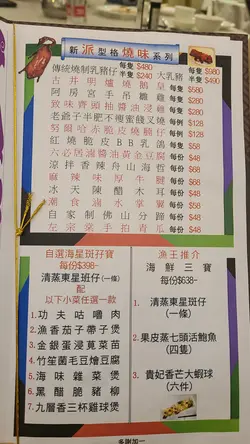 新派型格燒味系列
傳統燒制乳豬仔 每隻$480 半隻$240 大乳豬 每隻$980 半隻$490
古井明爐燒鵝皇 每隻$580
阿房宮手吊雞 每隻$280
致味齊頭抽醬油浸雞 每隻$280
老爺子半肥不瘦蜜餞叉燒 每例$128
努爾哈赤脆皮燒腩仔 每例$128
紅燒脆皮BB乳鴿 每隻$48
六必居滷醬油黃金豆腐 每份$68
涼拌香辣舟山海哲 每份$68
麻辣味厚牛 每份$68
冰天陳醋木耳 每份$48
潮食滷水掌翼 每份$68
自家制佛山分蹄 每份$48
左宗棠手拍青瓜 每份$48
自選海星斑孖寶
每份$398-
清蒸東星斑仔(一條)
配
以下小菜任選一款
1. 功夫咕嚕肉
2. 漁香茄子帶子煲
3. 金銀蛋浸莧菜苗
4. 竹笙菌毛豆燴豆腐
5. 海味雜菜煲
6. 黑醋脆豬柳
7. 九層香三杯雞球煲
漁王推介
海鮮三寶
每份$638-
1. 清蒸東星斑仔
(一條)
2. 果皮蒸七頭活鮑魚
(四隻)
3. 貴妃香芒大蝦球
(六件)
多謝加一